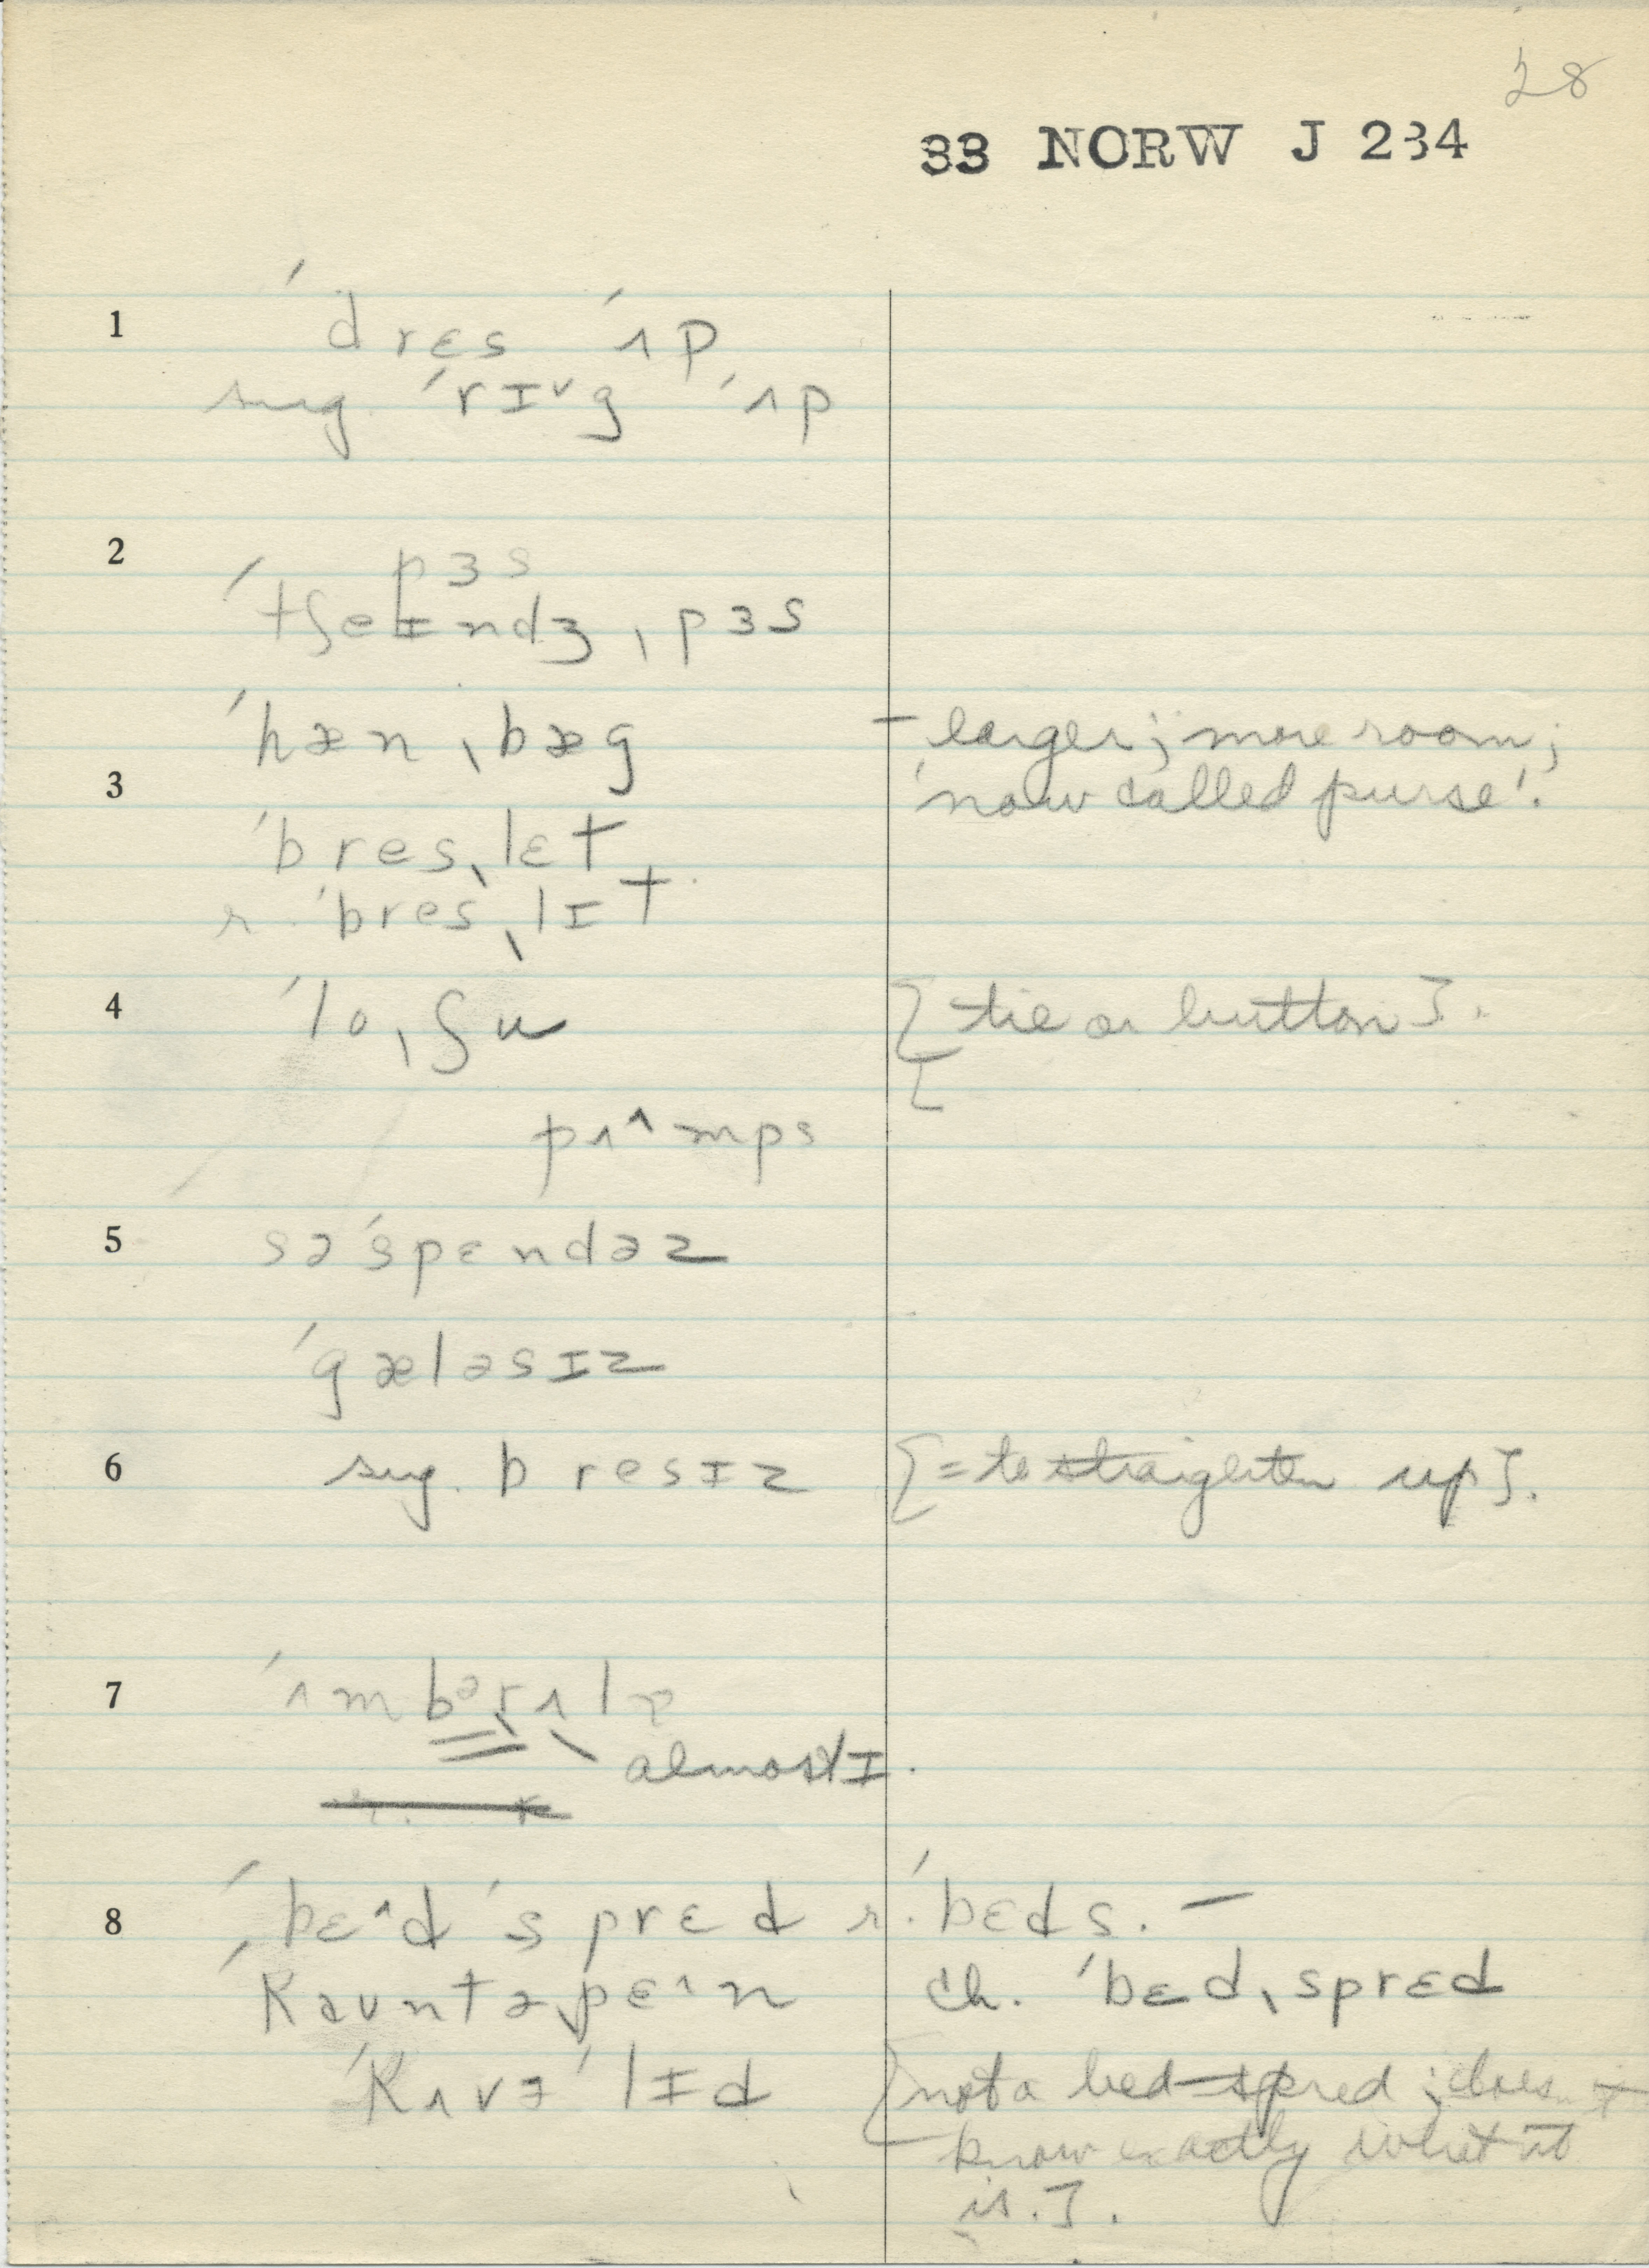 28
33 NORW J 234
1 ˈdrɛs ˈʌp
sug. ˈrɪ˅g ˈʌp
2 pɜs
ˈtʃeɪndʒˌpɜs
ˈhænˌbæg – larger; more room;
'now called purse'.
3 ˈbresˌlɛt
r. ˈbresˌlɪt
4 ˈloˌʃu [tie or button].
[
pʌ^mps
5 səˈspɛndəz
ˈgæləsɪz
6 sug. bresɪz [= to straighten up].
7 ˈʌmbərʌlə
almost ɪ.
8 ˈbɛ^dˈsprɛd r. ˈbɛds. –
ˈkauntəˌpɛ^n ch. ˈbɛdˌsprɛd
ˈkʌvɜˈlɪd [not a bed-spred; doesn't
know exactly what it
is.].